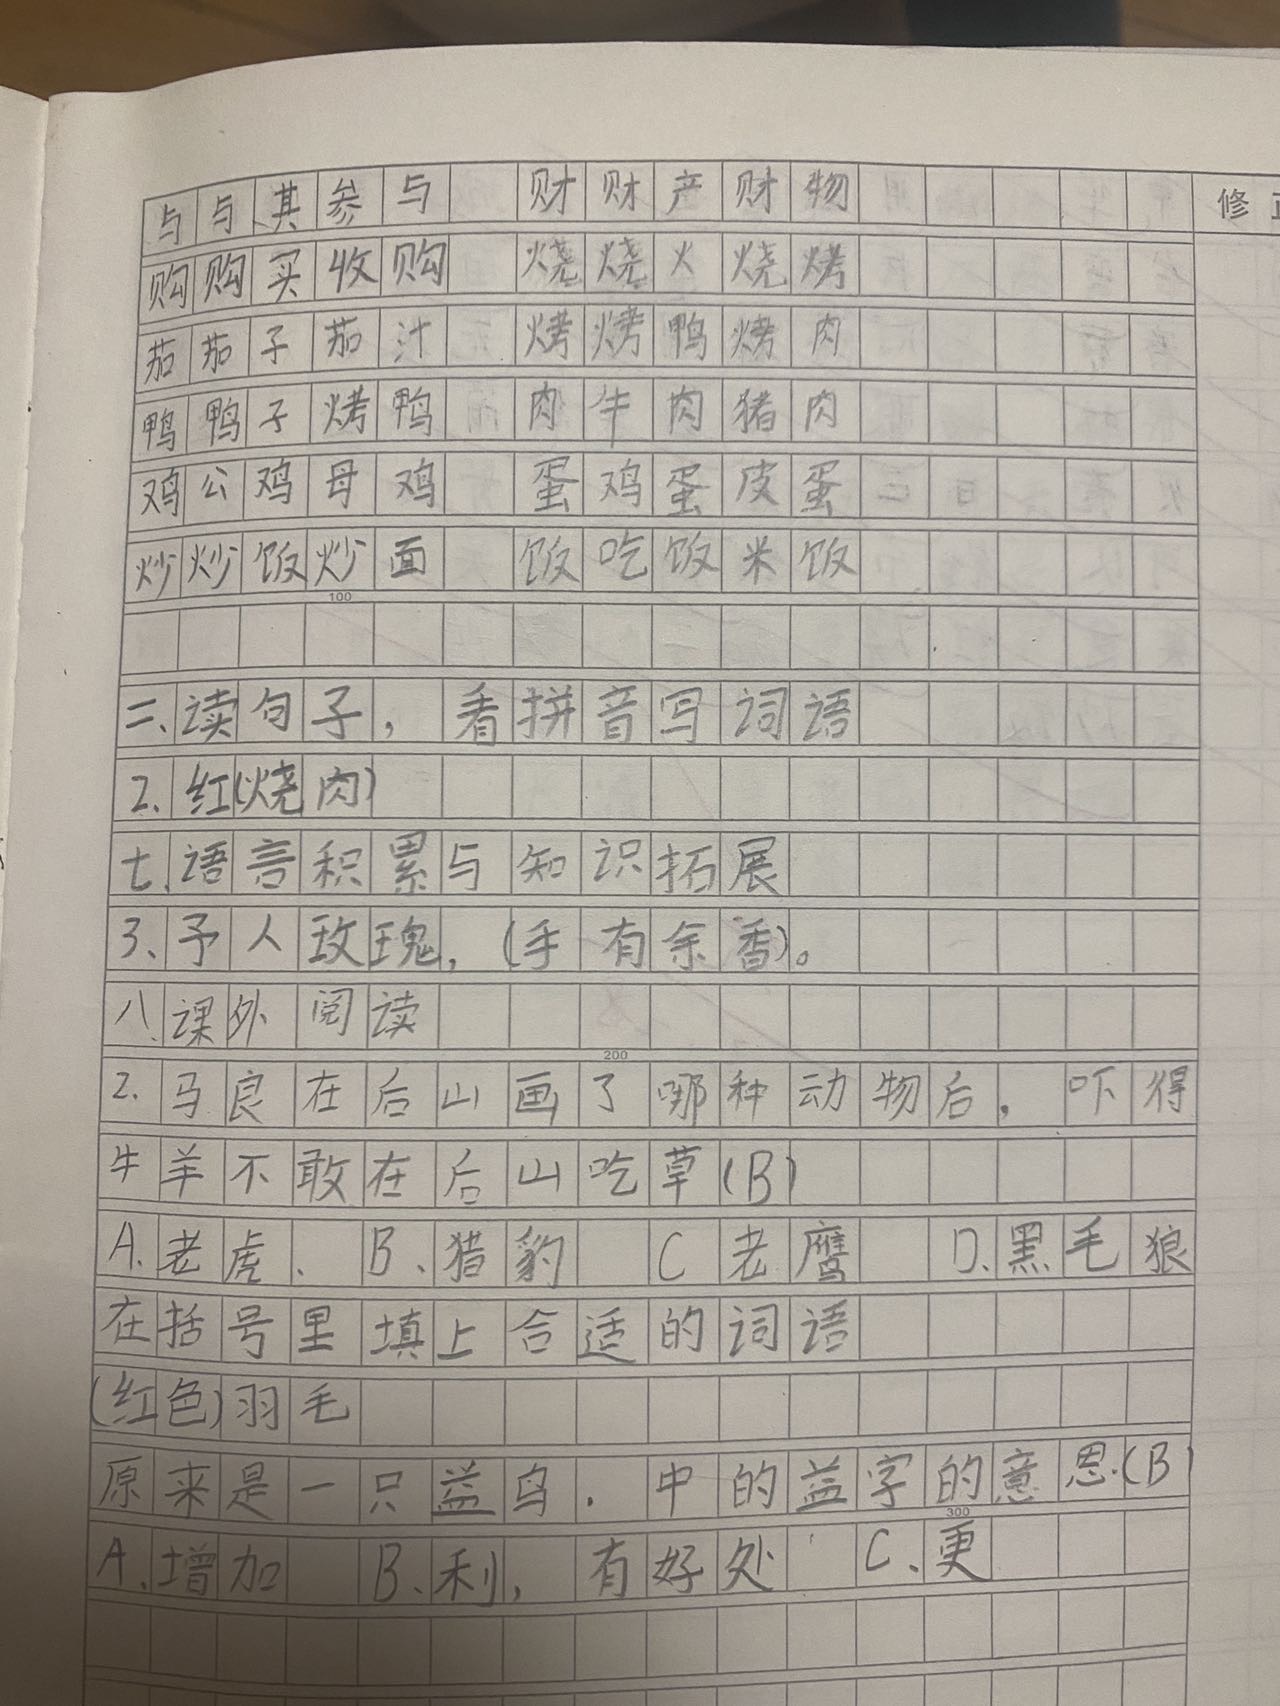 与与其参与 财财产财物
修
购购买收购 烧烧火烧烤
茄茄子茄汁 烤烤鸭烤肉
鸭鸭子烤鸭 肉牛肉猪肉
鸡公鸡母鸡 蛋鸡蛋皮蛋
炒炒饭炒面 饭吃饭米饭
100
二、读句子，看拼音写词语
2、红(烧肉)
七、语言积累与知识拓展
3、予人玫瑰，(手有余香)。
八、课外阅读
200
2、马良在后山画了哪种动物后，吓得
牛羊不敢在后山吃草(B)
A、老虎、 B、猎豹 C 老鹰 D、黑毛狼
在括号里填上合适的词语
(红色)羽毛
原来是一只益鸟．中的益字的意思．(B)
300
A、增加 B、利，有好处 C、更